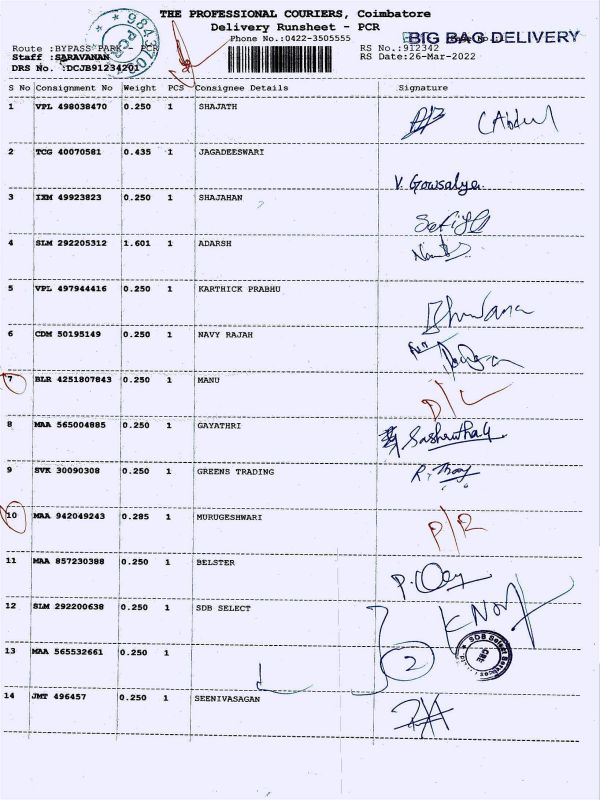 THE PROFESSIONAL COURIERS, Coimbatore
Delivery Runsheet - PCR
Phone No.:0422-3505555
BIG BAG DELIVERY
Route :BYPASS PARK - PCR
RS No.:912342
Staff :SARAVANAN
RS Date:26-Mar-2022
DRS No. :DCJB91234201
S No Consignment No Weight PCS Consignee Details Signature
1 VPL 498038470 0.250 1 SHAJATH
C Abdul
2 TCG 40070581 0.435 1 JAGADEESWARI
V. Gowsalya
3 IXM 49923823 0.250 1 SHAJAHAN
4 SLM 292205312 1.601 1 ADARSH
5 VPL 497944416 0.250 1 KARTHICK PRABHU
6 CDM 50195149 0.250 1 NAVY RAJAH
7 BLR 4251807843 0.250 1 MANU
D/L
8 MAA 565004885 0.250 1 GAYATHRI
9 SVK 30090308 0.250 1 GREENS TRADING
10 MAA 942049243 0.285 1 MURUGESHWARI
P/R
11 MAA 857230388 0.250 1 BELSTER
12 SLM 292200638 0.250 1 SDB SELECT
SDB Select Services
CBE
13 MAA 565532661 0.250 1
2
14 JMT 496457 0.250 1 SEENIVASAGAN